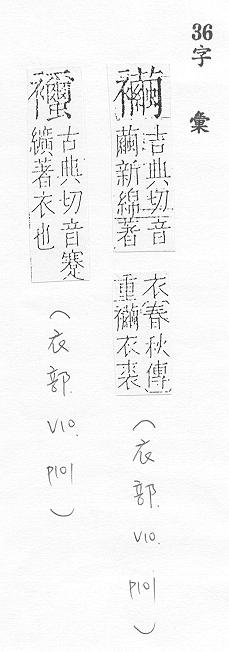 36字彙
襺
吉典切音
繭新綿著
衣春秋傳
重襺衣裘
(衣部. V10. P101)
古典切音蹇
纊著衣也
(衣部. V10. P101)